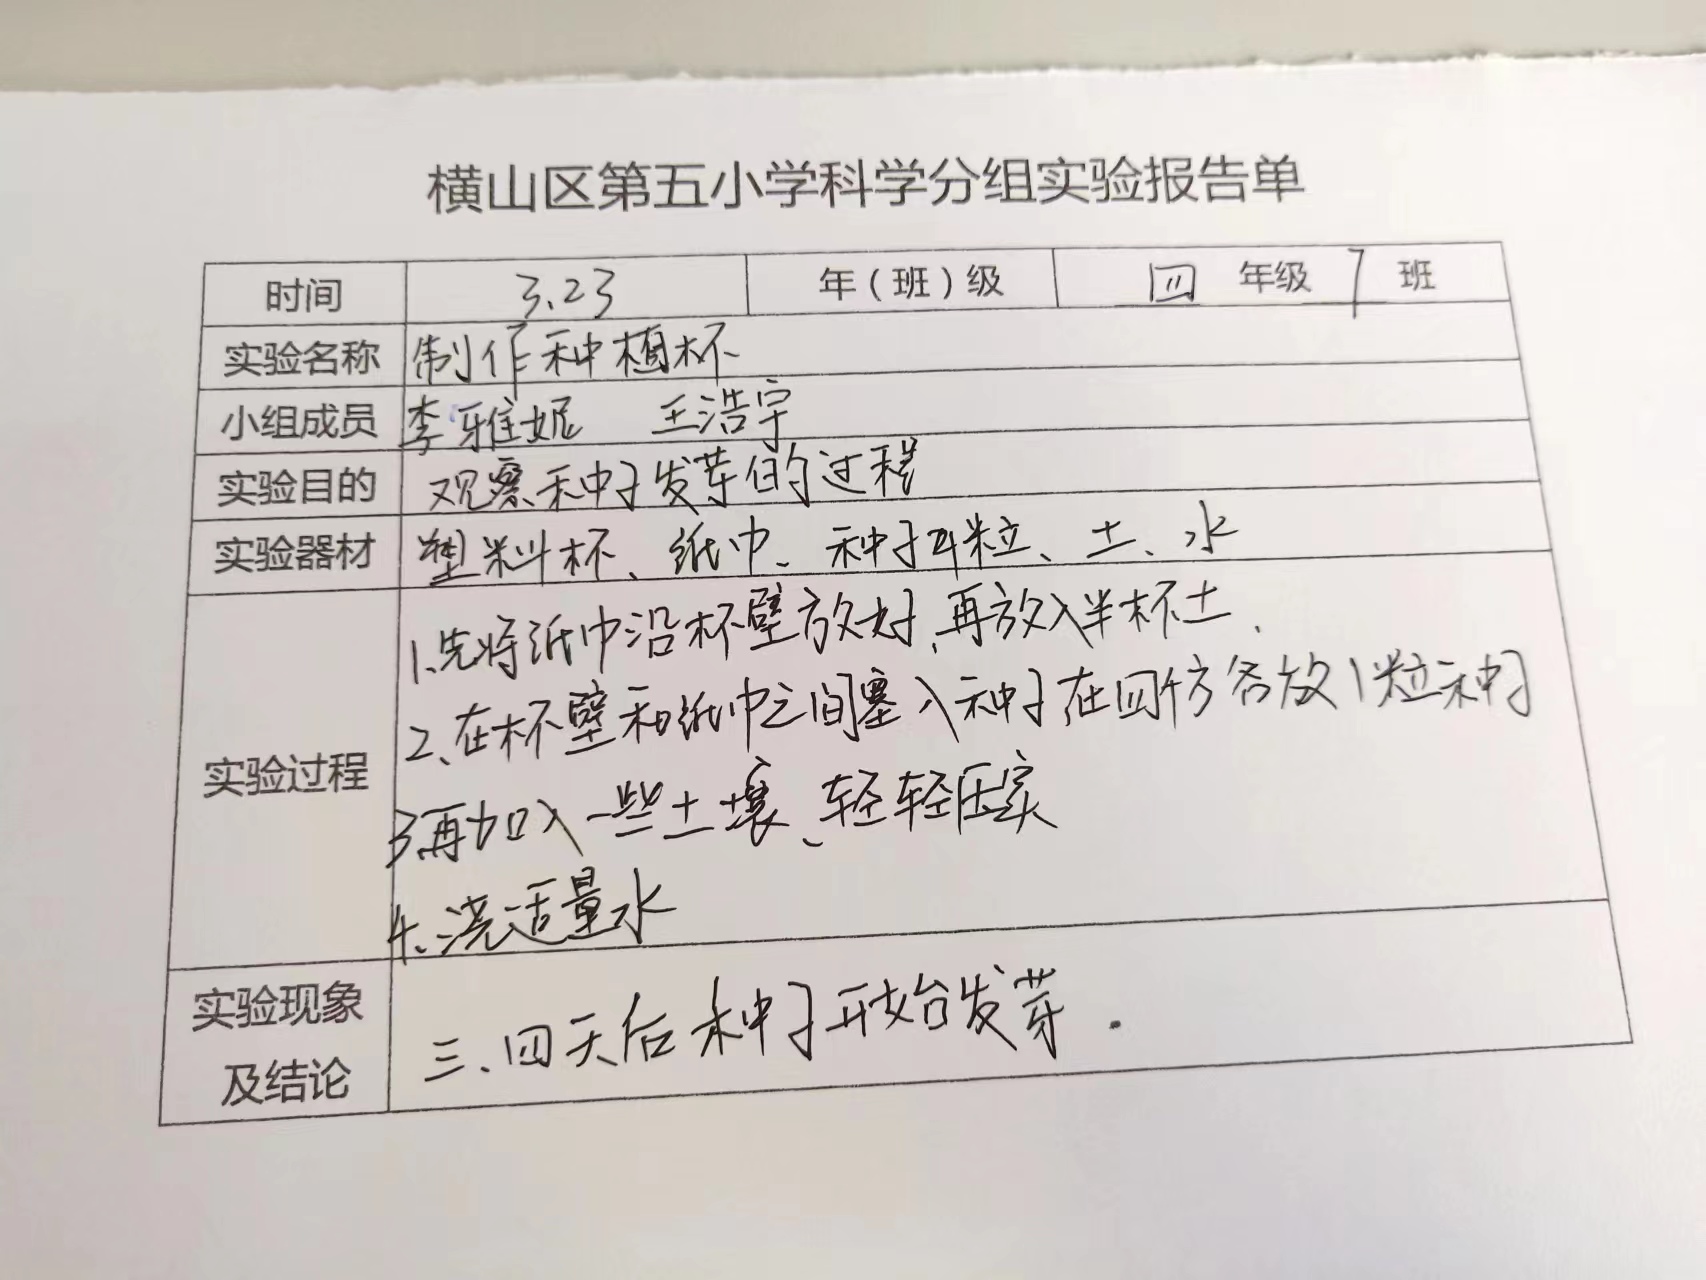 横山区第五小学科学分组实验报告单
时间 3.23 年(班)级 四 年级 7 班
实验名称 制作种植杯
小组成员 李雅妮 王浩宇
实验目的 观察种子发芽的过程
实验器材 塑料杯、纸巾、种子4粒、土、水
实验过程
1.先将纸巾沿杯壁放好,再放入半杯土.
2、在杯壁和纸巾之间塞入种子在四个方各放1粒种子
3再加入一些土壤、轻轻压实
4、浇适量水
实验现象
及结论
三、四天后种子开始发芽.